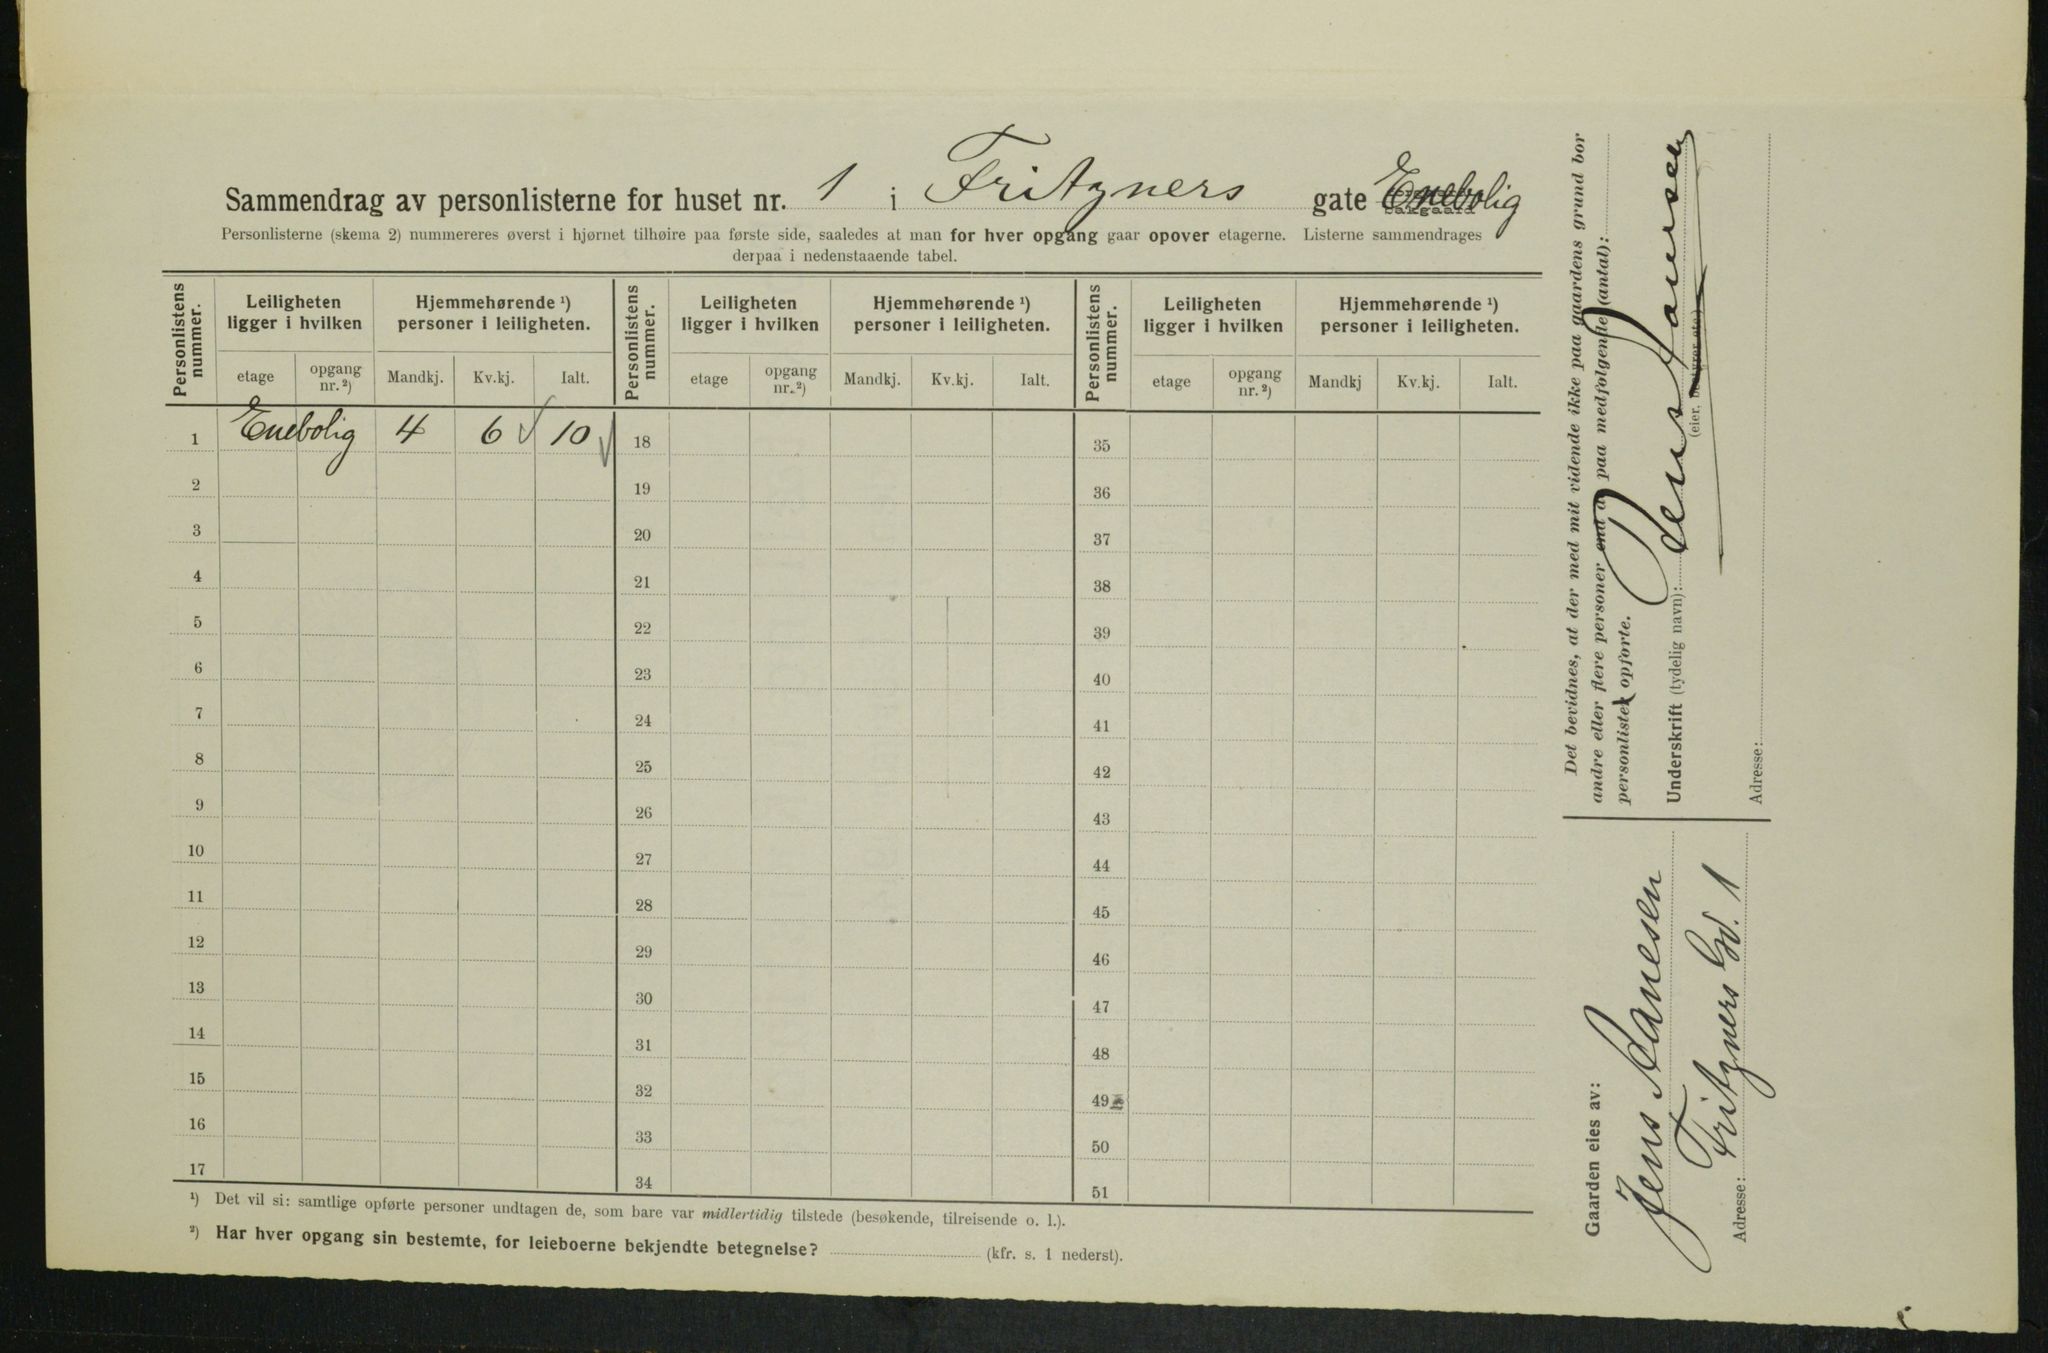 Sammendrag av personlisterne for huset nr. 1 i Fritzners gate Enebolig
Personlisterne (skema 2) nummereres øverst i hjørnet tilhøire paa første side, saaledes at man for hver opgang gaar opover etagerne. Listerne sammendrages
derpaa i nedenstaaende tabel.
Personlistens nummer. Leiligheten ligger i hvilken Hjemmehørende ¹) personer i leiligheten. Personlistens nummer. Leiligheten ligger i hvilken Hjemmehørende ¹) personer i leiligheten. Personlistens nummer. Leiligheten ligger i hvilken Hjemmehørende ¹) personer i leiligheten.
etage opgang nr.²) Mandkj. Kv.kj. Ialt. etage opgang nr.²) Mandkj. Kv.kj. Ialt. etage opgang nr.²) Mandkj Kv.kj. Ialt.
1 Enebolig 4 6 10 18 35
2 19 36
3 20 37
4 21 38
5 22 39
6 23 40
7 24 41
8 25 42
9 26 43
10 27 44
11 28 45
12 29 46
13 30 47
14 31 48
15 32 49
16 33 50
17 34 51
¹) Det vil si: samtlige opførte personer undtagen de, som bare var midlertidig tilstede (besøkende, tilreisende o. l.).
²) Har hver opgang sin bestemte, for leieboerne bekjendte betegnelse? (kfr. s. 1 nederst).
Det bevidnes, at der med mit vidende ikke paa gaardens grund bor
andre eller flere personer end de paa medfølgende (antal):
personlister opførte.
Underskrift (tydelig navn): Jens Hansen
(eier, bestyrer etc.)
Adresse:
Gaarden eies av:
Jens Hansen
Adresse: Fritzners Gd. 1